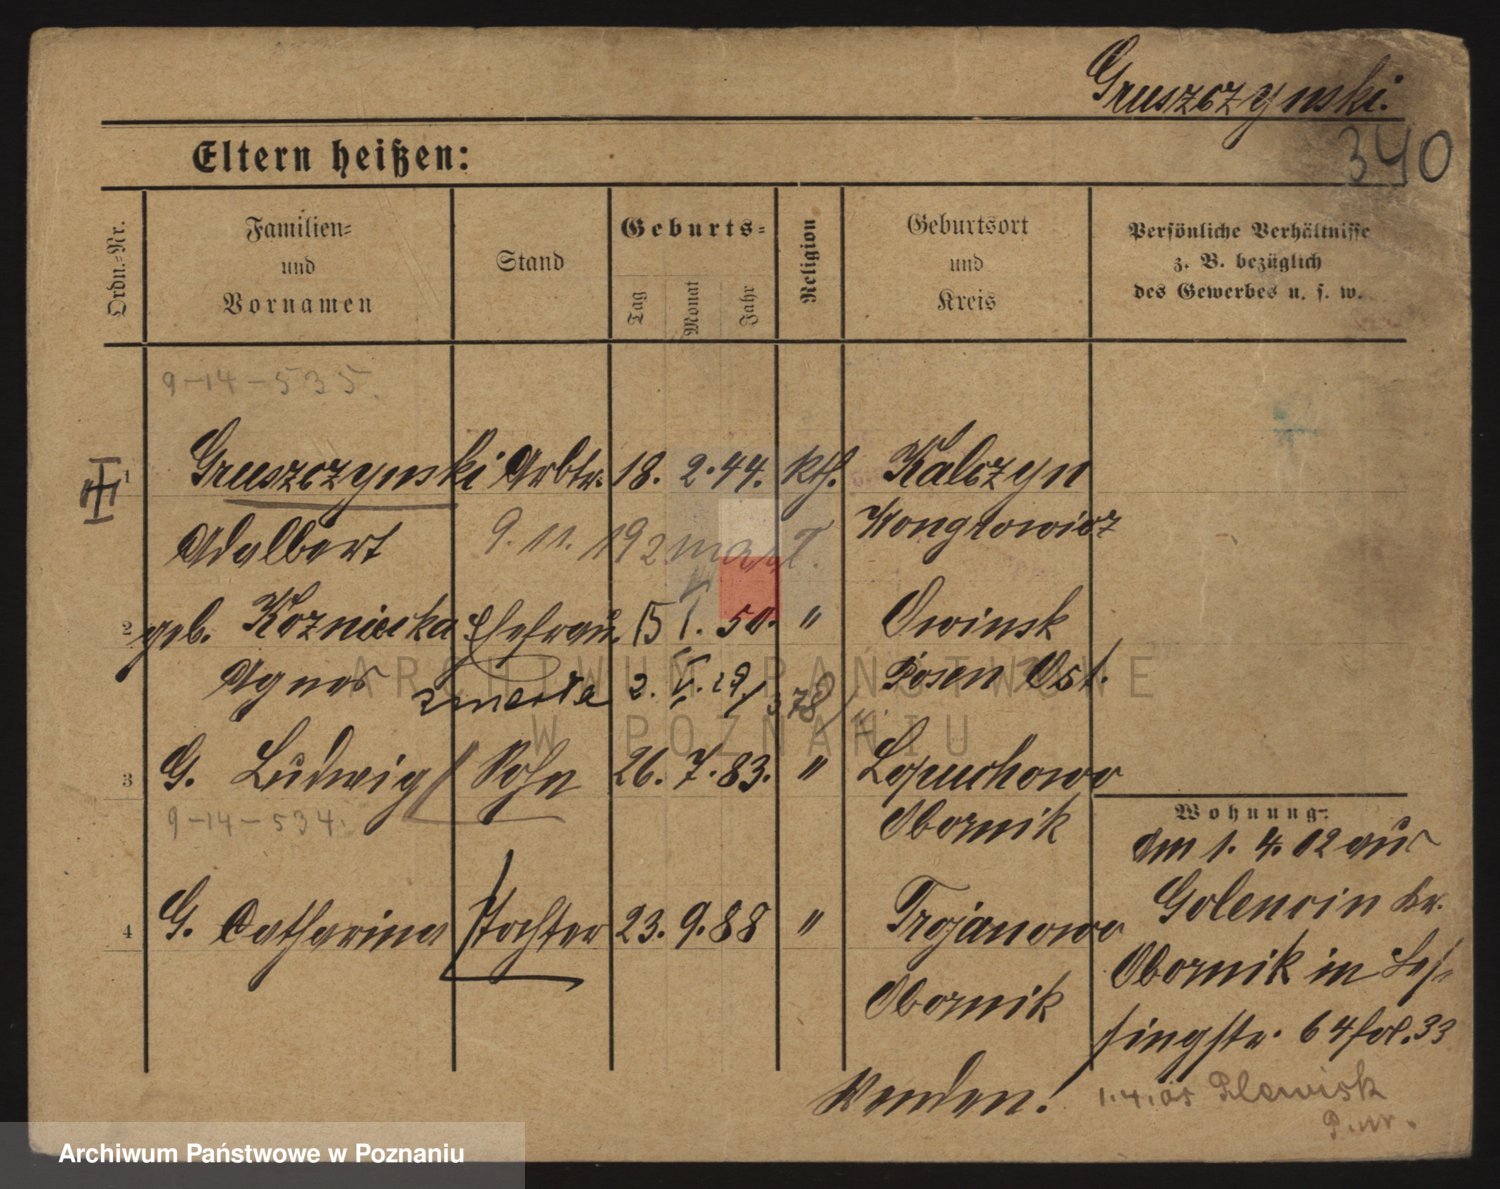 Gruszczynski.
340
Eltern heißen:
Ordn.-Nr.
Familien-
und
Vornamen
Stand
Geburts-
Tag
Monat
Jahr
Religion
Geburtsort
und
Kreis
Persönliche Verhältnisse
z. B. bezüglich
des Gewerbes u. s. w.
9-14-535.
III
1 Gruszczynski Arbtr. 18. 2. 44. kth. Kalczyn
Adalbert 9. 11. 19 Wongrowicz
2 geb. Kozniecka Ehefrau. 15 1. 50. " Owinsk
Agnes zmarła 2. V. 29/ 378/ Posen Ost.
3 G. Ludwig Sohn 26. 7. 83. " Lopuchowo
9-14-534. Obornik
4 G. Catharina Tochter 23. 9. 88 " Trojanowo
Obornik
Wohnung:
Am 1. 4. 02 aus
Golencin Kr.
Obornik in Les-
singstr. 64 fol. 33
Wenden!
1.4.05 Plewisk
P.W.
ARCHIWUM PAŃSTWOWE
W POZNANIU
Archiwum Państwowe w Poznaniu